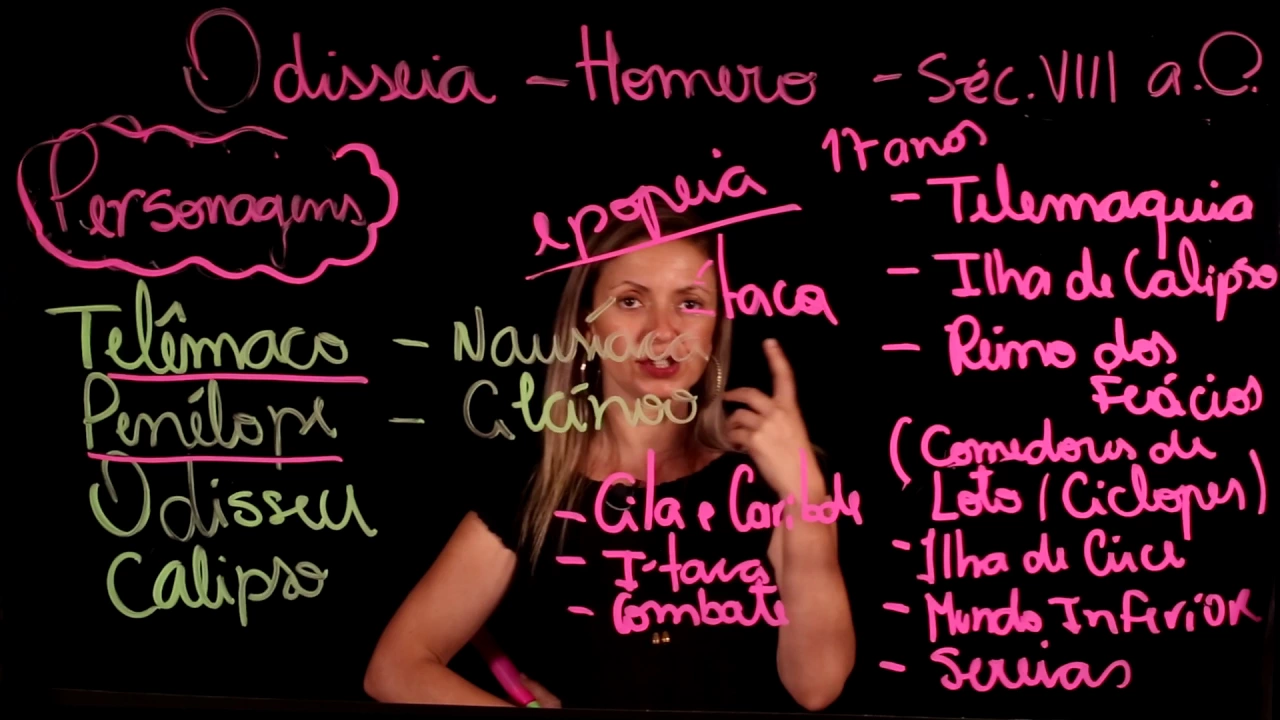 Odisseia - Homero - Séc. VIII a.C.
Personagens
Telêmaco - Nausíaca
Penélope - Alcínoo
Odisseu
Calipso
epopeia
Ítaca
- Cila e Caribde
- Ítaca
- Combate
17 anos
- Telemaquia
- Ilha de Calipso
- Reino dos
Feácios
(Comedores de
Loto / Ciclopes)
- Ilha de Circe
- Mundo Inferior
- Sereias